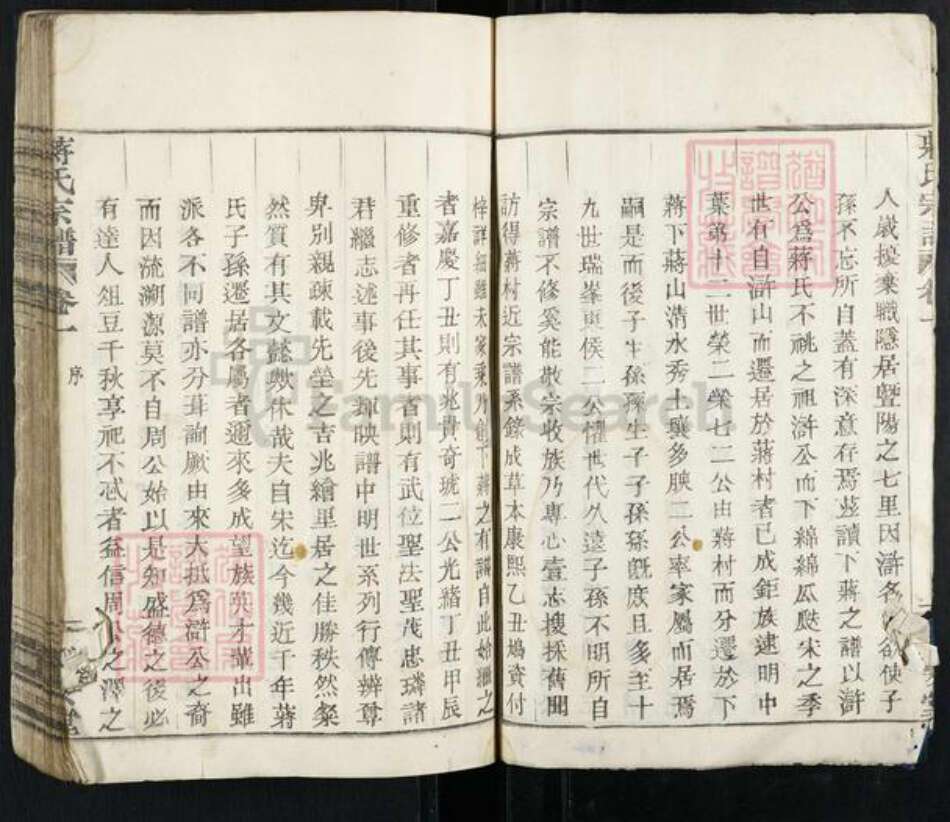 蔣氏宗譜 卷一
人嚴擾棄職隱居暨陽之七里因滸名 欲使子
孫不忘所自蓋有深意存焉茲讀下蔣之譜以滸
公爲蔣氏不祧之祖滸公而下綿綿瓜瓞宋之季
世有自滸山而遷居於蔣村者已成鉅族逮明中
葉第十二世榮二榮七二公由蔣村而分遷於下
蔣下蔣山清水秀土壤多腴二公率家屬而居焉
嗣是而後子生孫孫生子子孫孫旣庶且多至十
九世瑞峯東侯二公懼世代久遠子孫不明所自
宗譜不修奚能敬宗收族乃專心壹志搜採舊聞
訪得蔣村近宗譜系錄成草本康熙乙丑鳩資付
梓詳細雖未家乘乃創下蔣之有譜自此始繼之
者嘉慶丁丑則有兆貴奇琥二公光緒丁丑甲辰
重修者再任其事者則有武位聖法聖茂忠璘諸
君繼志述事後先輝映譜中明世系列行傳辨尊
卑別親疎載先塋之吉兆繪里居之佳勝秩然粲
然質有其文懿歟休哉夫自宋迄今幾近千年蔣
氏子孫遷居各屬者邇來多成望族英才輩出雖
派各不同譜亦分葺諭厥由來大抵爲滸公之裔
而因流溯源莫不自周公始以是知盛德之後必
有達人俎豆千秋享祀不忒者益信周公之澤之
蔣氏宗譜 卷一 序
FamilySearch